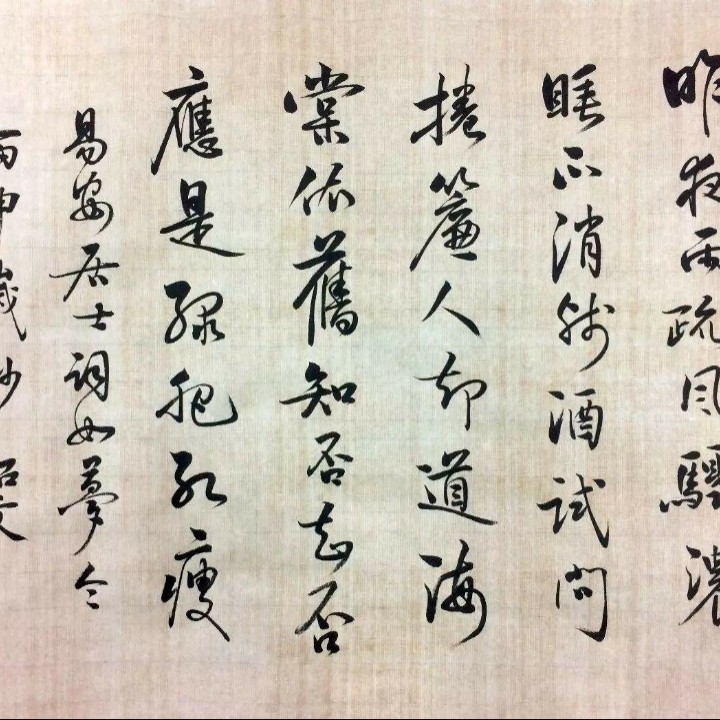 昨夜雨疏風驟濃
睡不消殘酒試問
捲簾人却道海
棠依舊知否知否
應是綠肥紅瘦
易安居士詞如夢令
丙申歲